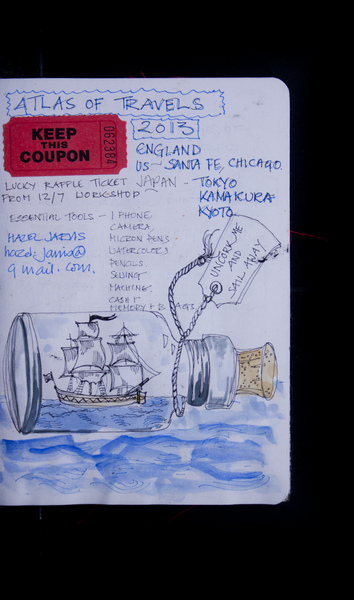 ATLAS OF TRAVELS
2013
KEEP
THIS
COUPON
062384
ENGLAND
US - SANTA FE, CHICAGO.
LUCKY RAFFLE TICKET
FROM 12/7 WORKSHOP
JAPAN - TOKYO
KAMAKURA
KYOTO
ESSENTIAL TOOLS - I PHONE
CAMERA,
MICRON PENS
WATERCOLORS
PENCILS
SEWING
MACHINE,
CASH &
MEMORY
UNCORK ME
AND
SAIL AWAY